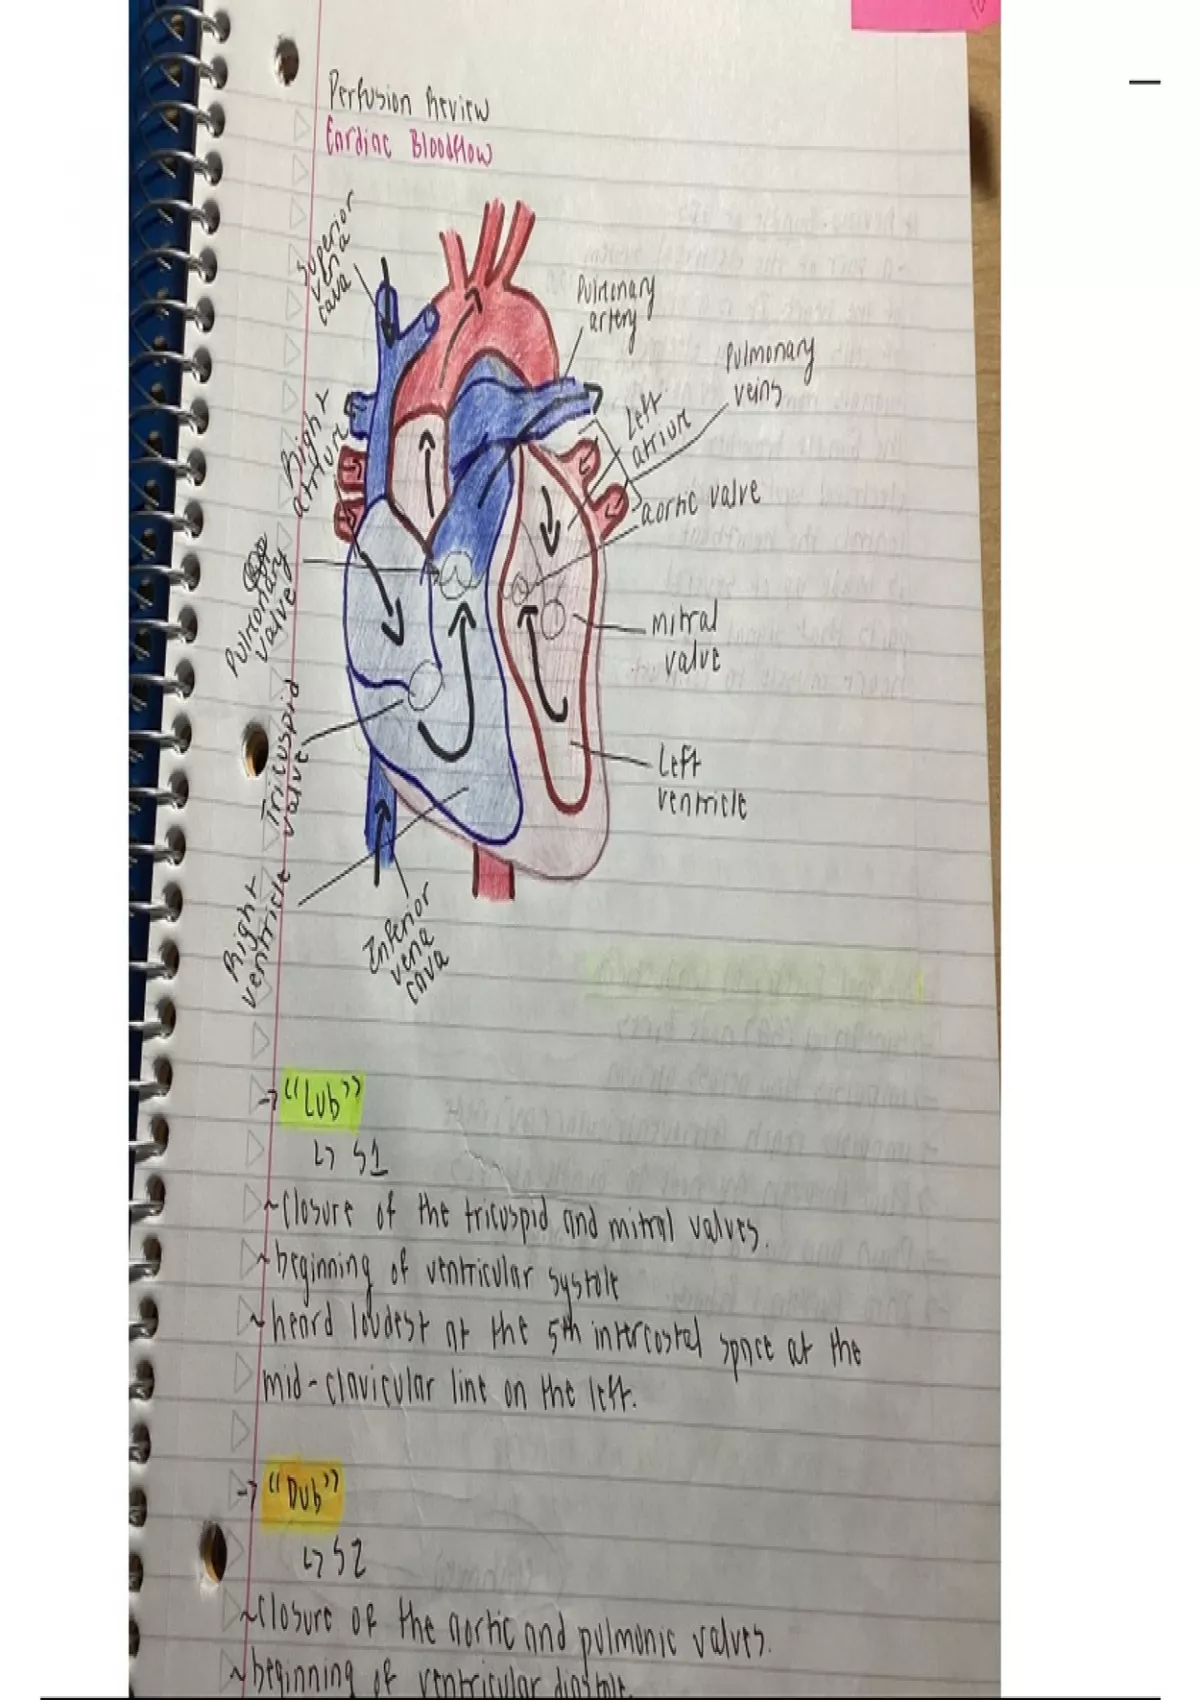 Perfusion Review
Cardiac Bloodflow
Superior
vena
cava
Pulmonary
artery
Pulmonary
veins
Left
atrium
Right
atrium
aortic valve
Pulmonary
valve
mitral
valve
Tricuspid
valve
Left
ventricle
Right
ventricle
Inferior
vena
cava
→ "Lub"
↳ S1
~closure of the tricuspid and mitral valves.
~beginning of ventricular systole
~heard loudest at the 5th intercostal space at the
mid-clavicular line on the left.
→ "Dub"
↳ S2
~closure of the aortic and pulmonic valves.
~beginning of ventricular diastole.